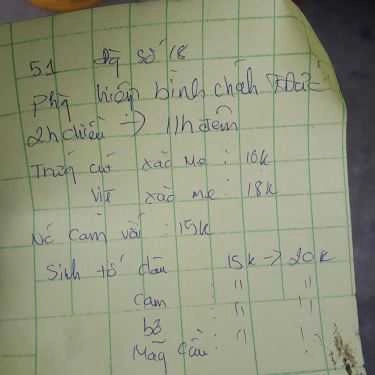 51 đg số 18
hiệp bình chánh
2h chiều => 11h đêm
Trứng cút xào me : 16k
Vịt xào me : 18k
Nc cam vắt : 15k
Sinh tố dâu 15k -> 20k
cam " "
bơ " "
Mãg cầu : " "